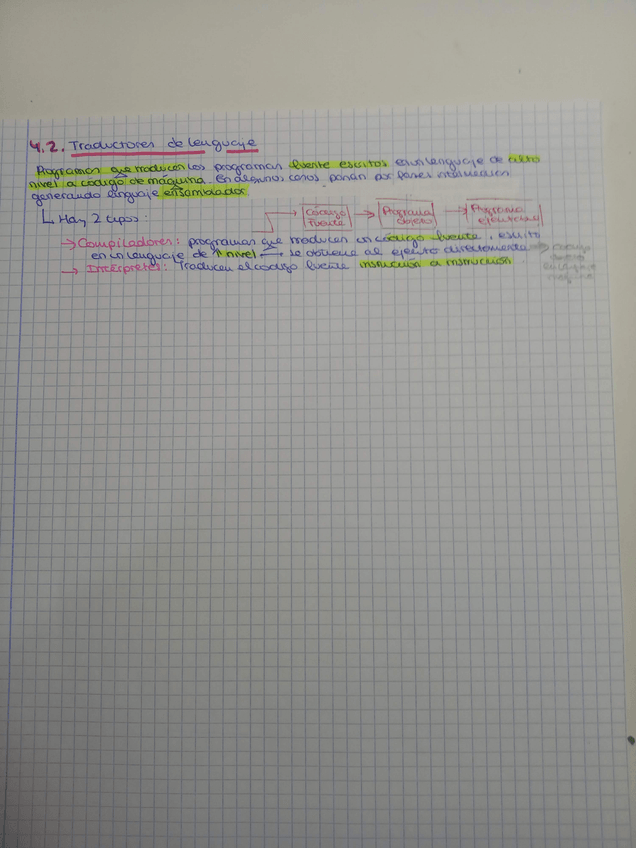 4.2. Traductores de lenguaje
Programas que traducen los programas fuente escritos en un lenguaje de alto
nivel a código de máquina. En algunos casos pasan por fases intermedias
generando lenguaje ensamblador.
↳ Hay 2 tipos:
Código fuente → Programa objeto → Programa ejecutable
→ Compiladores: programas que traducen un código fuente, escrito
en un lenguaje de ↑ nivel se obtiene al ejecuto directamente
→ Intérpretes: Traducen el código fuente instrucción a instrucción